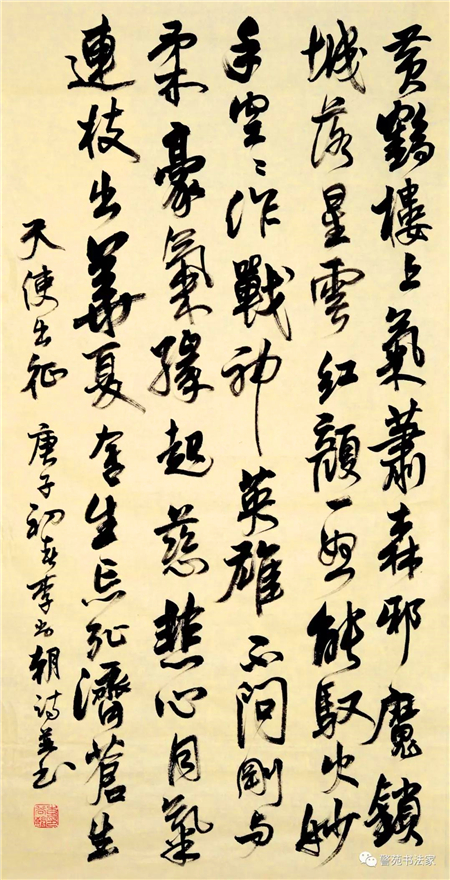 黄鶴樓上氣蕭森邪魔鎖
城落星雲紅顏一怒能馭火妙
手空〻作戰神英雄不問剛与
柔豪氣緣起慈悲心同氣
連枝出華夏舍生忘死濟蒼生
天使出征 庚子初春李尚朝詩並书
苑书法家